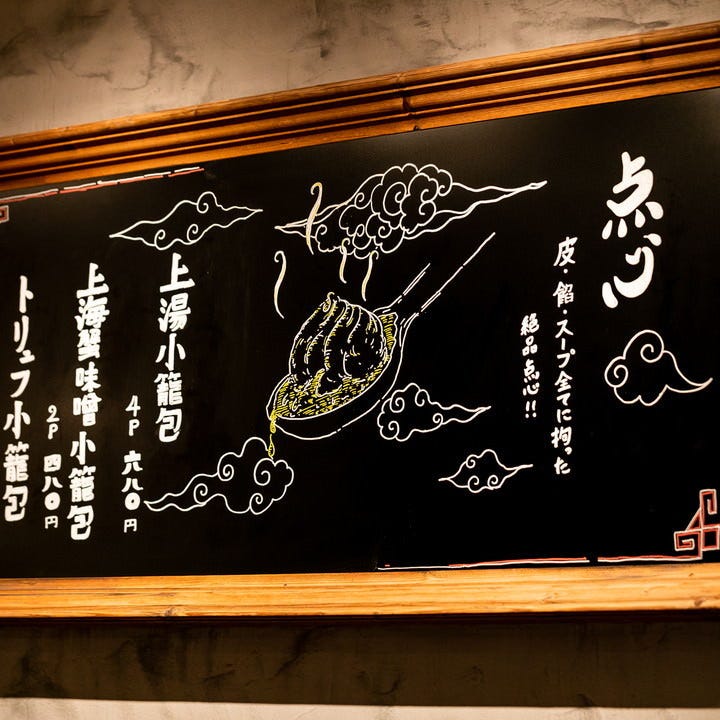 点心
皮・餡・スープ全てに拘った
絶品点心!!
上湯小籠包
4P 六八〇円
上海蟹味噌小籠包
2P 四八〇円
トリュフ小籠包